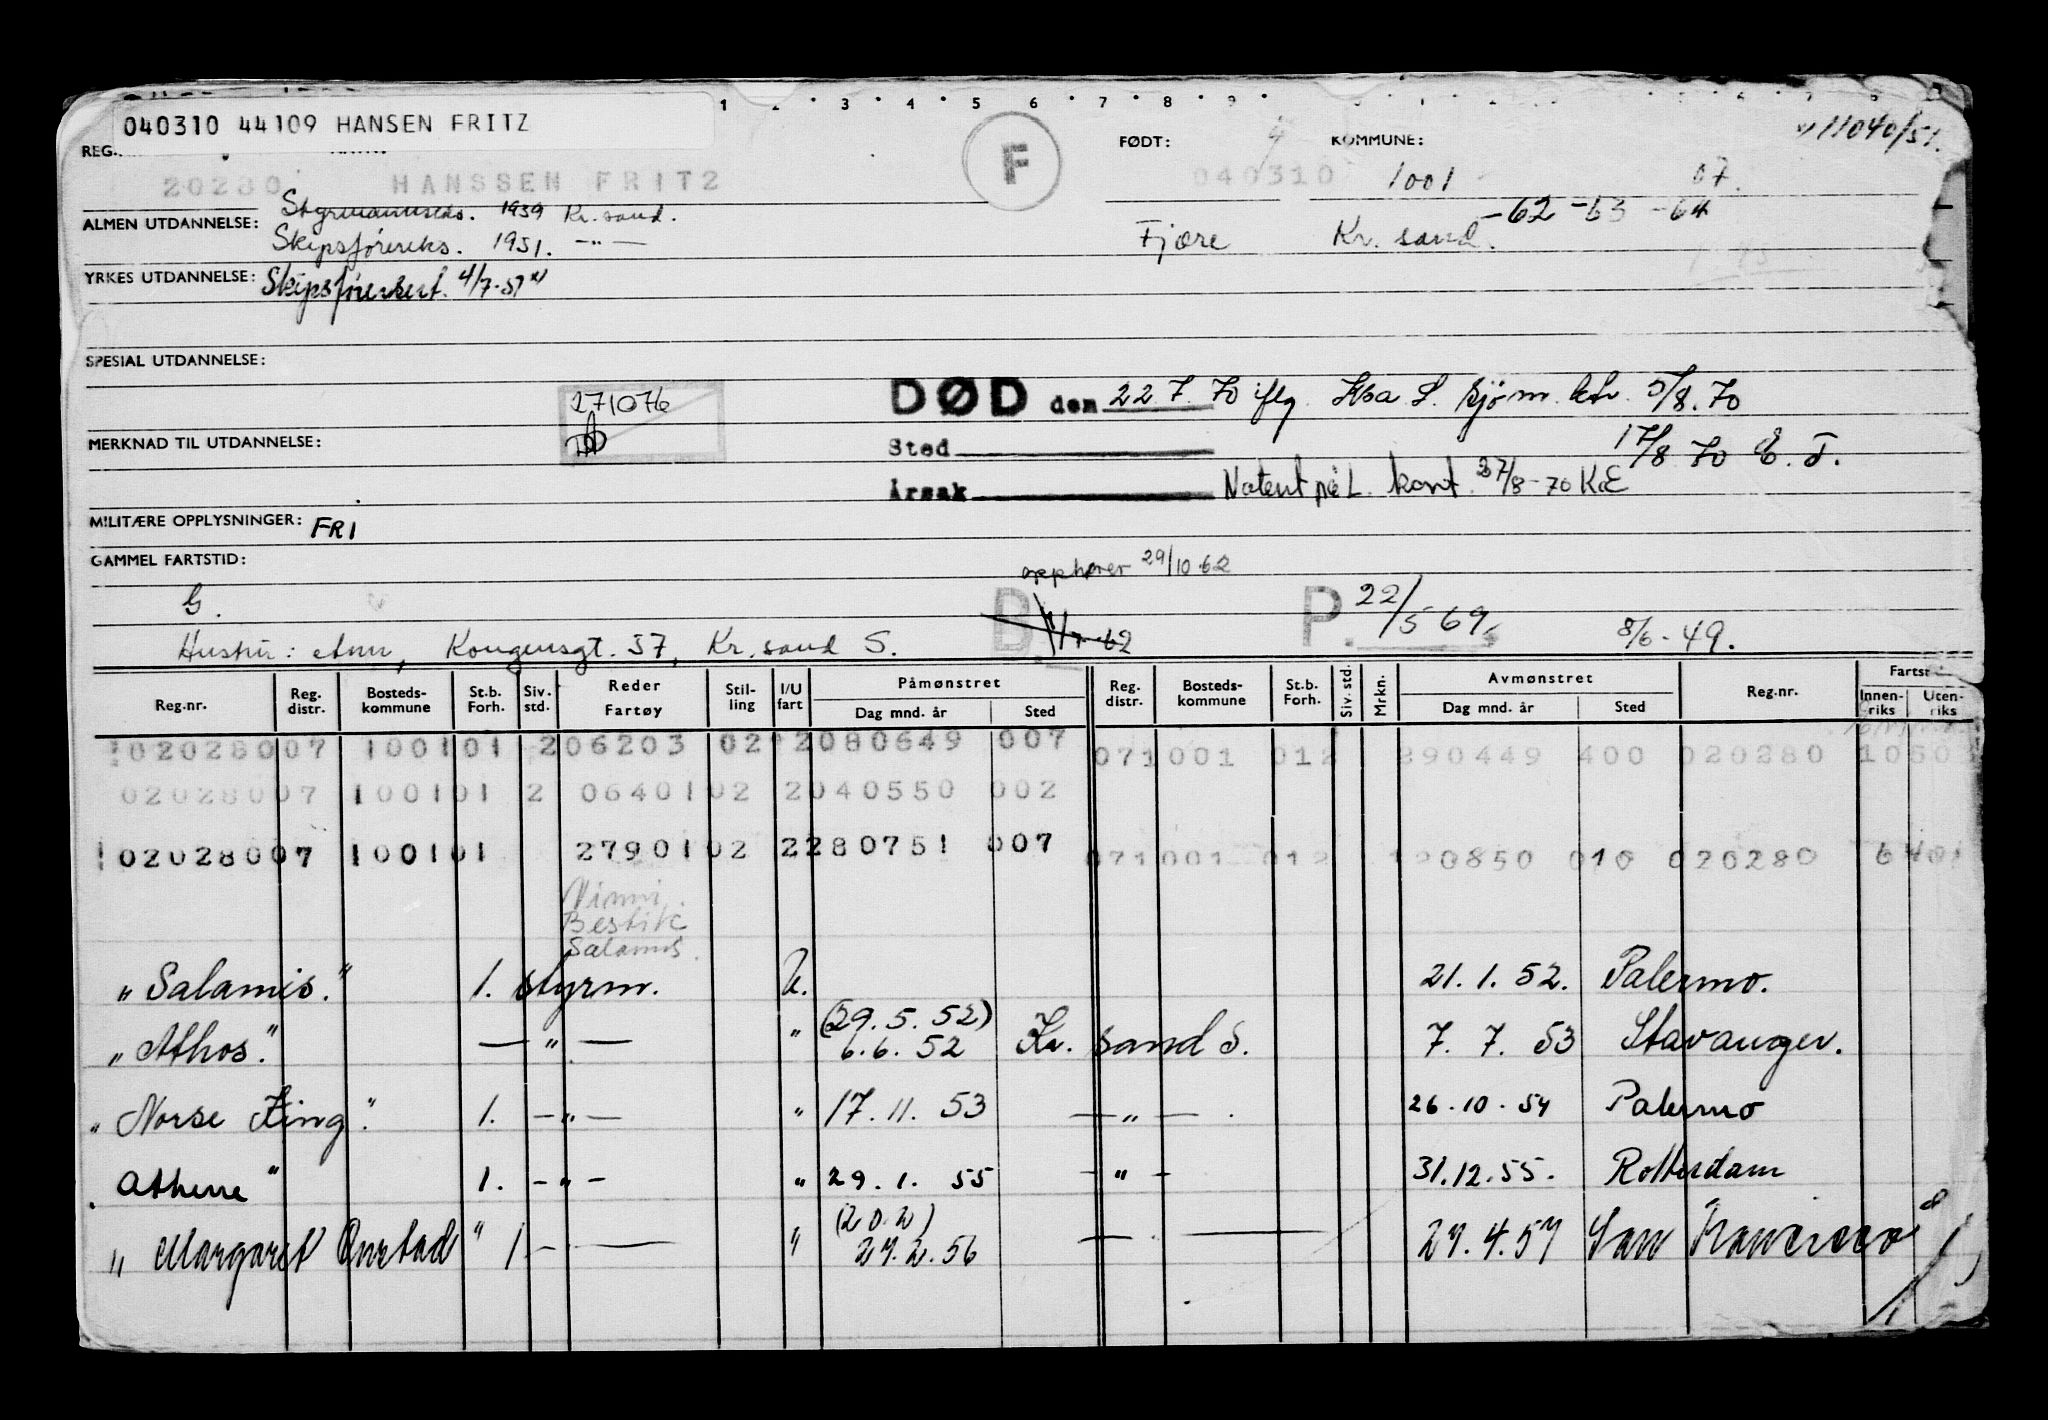 1 2 3 4 5 6 7 8 9
040310 44109 HANSEN FRITZ
11040/51.
REG. FØDT: 4 KOMMUNE:
20280 HANSSEN FRITZ F 040310 1001 07.
-62 -63 -64
ALMEN UTDANNELSE: Styrmannseks. 1939 Kr.sand.
Skipsførereks. 1951. -"- Fjære Kr. sand.
YRKES UTDANNELSE: Skipsførersert. 4/7-51 x)
SPESIAL UTDANNELSE:
271076
DØD den 22 7. 70 iflg. Kr.sa S. sjøm. ktr. 5/8.70
MERKNAD TIL UTDANNELSE: Sted 17/8 70 E. T.
Årsak Notert på L. kort. 27/8-70 KE
MILITÆRE OPPLYSNINGER: FRI
GAMMEL FARTSTID:
opphører 29/10 62
G. B. 4/7-62 P. 22/5 69.
Hustru: Ann, Kongensgt. 57, Kr.sand S. 8/6-49.
Reg.nr. Reg. distr. Bosteds-kommune St.b. Forh. Siv. std. Reder Fartøy Stil-ling I/U fart Påmønstret Dag mnd. år Sted Reg. distr. Bosteds-kommune St.b. Forh. Siv. std. Mrkn. Avmønstret Dag mnd. år Sted Reg.nr. Innen-riks Uten-riks
02028007 100101 206203 02 2080649 007 071001 012 290449 400 020280
02028007 100101 2 06401 02 2040550 002
02028007 100101 27901 02 2280751 007 071001 012 020280
Nimmi.
Bestik
Salamis.
"Salamis." 1. styrm. U. 21.1.52. Palermo.
"Athos." — " — " (29.5.52) 6.6.52 Kr. sand S. 7.7.53 Stavanger.
"Norse King". 1. — " — " 17.11.53 — " — . 26.10.54 Palermo
"Athene" 1. — " — " 29.1.55 — " — 31.12.55. Rotterdam
"Margaret Onstad" 1 — " (20.2) 27.2.56 — " — 27.4.57 San Francisco